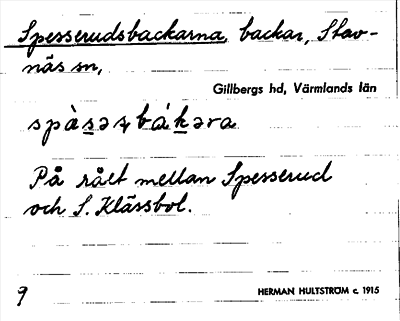 Spesserudsbackarna, backar, Stav-
näs sn,
Gillbergs hd, Värmlands län
På rået mellan Spesserud
och S. Klässbol.
9
HERMAN HULTSTRÖM c. 1915